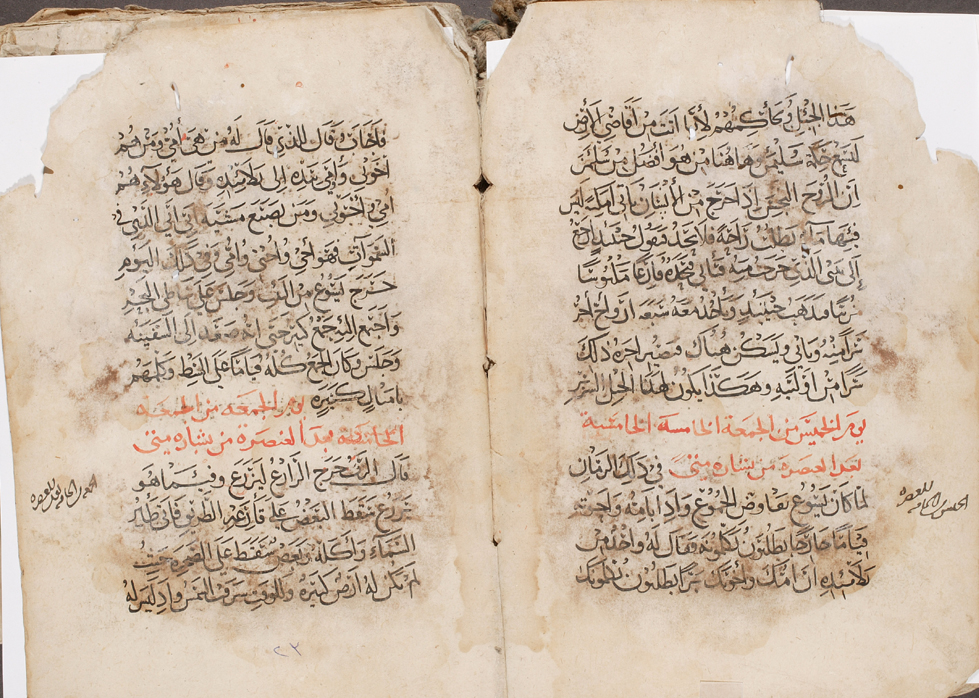 هذا الجيل وتحاكمهم لأنها اتت من أقاصي الأرض
لتسمع حكمة سليمن وهاهنا من هو أفضل من سليمن
إن الروح النجس إذا خرج من الإنسان اتى امكنة ليس
فيها ما يطلب راحة فلا يجد فيقول حينيذ ارجع
إلى بيتي الذي خرجت منه فياتي فيجده فارغا مكنوسا
مزينا فيذهب حينيذ وياخذ معه سبعة ارواح اخر
شر منه وياتي ويسكن هناك فتصير اخرة ذلك
شرا من اوليته وهكذا يكون لهذا الجيل الشرير
يوم الخميس من الجمعة الخامسة الخامسة
بعد العنصرة من بشارة متى في ذلك الزمان
لما كان يسوع يفاوض الجموع وإذا بامه واخوته
قياما خارجا يطلبون يكلمونه فقال له واحد من
تلاميذه ان امك واخوتك برا يطلبون يكلموك
الخميس الخامسه للعنصره
فاجاب وقال للذي قال له من هي أمي ومن هم
اخوتي وأومى بيده إلى تلاميذه وقال هؤلاء هم
امي واخوتي ومن يصنع مشية ابي الذي في
السموات فهو أخي وأختي وأمي وفي ذلك اليوم
خرج يسوع من البيت وجلس على شاطي البحر
واجتمع إليه جمع كبير حتى انه صعد إلى السفينة
وجلس وكان الجمع كله قياما على الشط وكلمهم
بامثال كثيرة يوم الجمعة من الجمعة
الخامسة بعد العنصرة من بشارة متى
قال الرب خرج الزارع ليزرع وفيما هو
يزرع سقط البعض على قارعة الطريق فاتى طير
السماء وأكله وبعض سقط على الصخرة حيث
لم تكن له ارض كثيرة وللوقت شرقت الشمس وإذ ليس له
٢٢